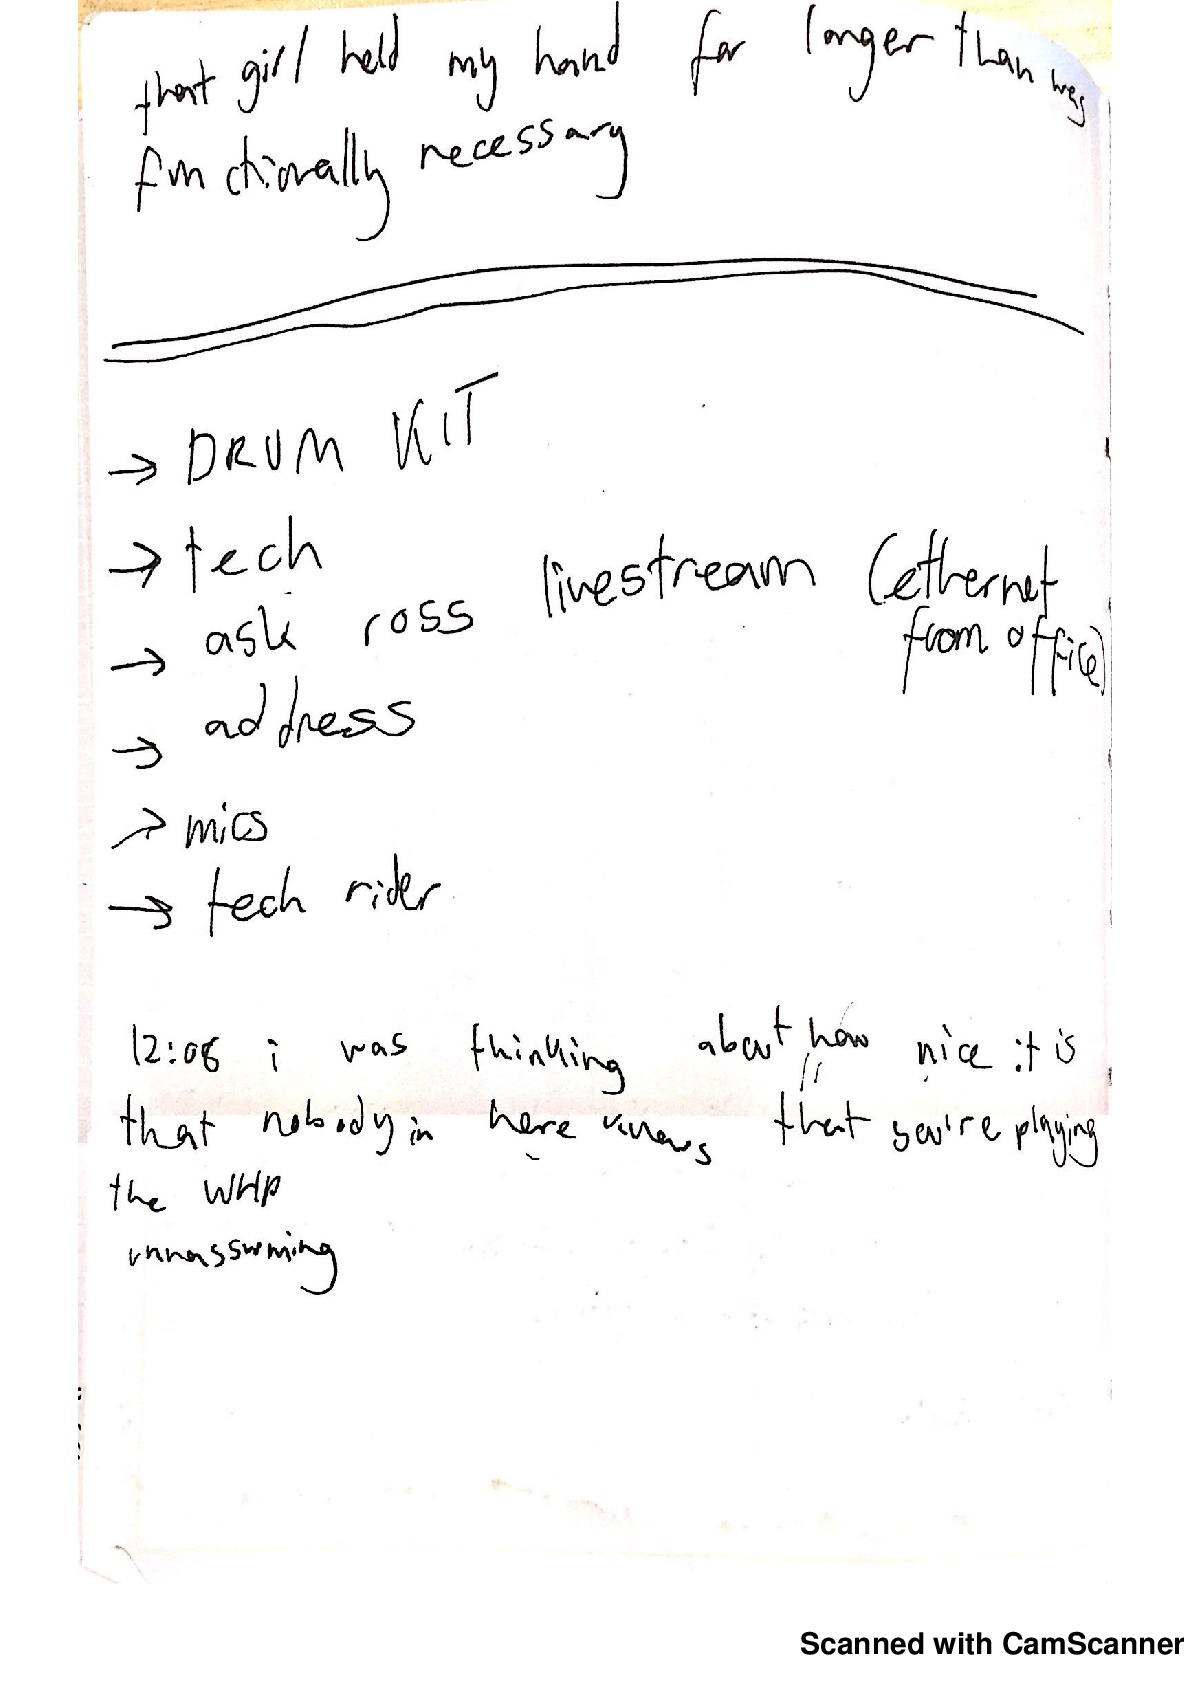 that girl held my hand for longer than was
functionally necessary
→ DRUM KIT
→ tech
→ ask ross livestream (ethernet
from office)
→ address
→ mics
→ tech rider
12:06 i was thinking about how nice it is
that nobody in here knows that you're playing
the WHP
unnassuming
Scanned with CamScanner